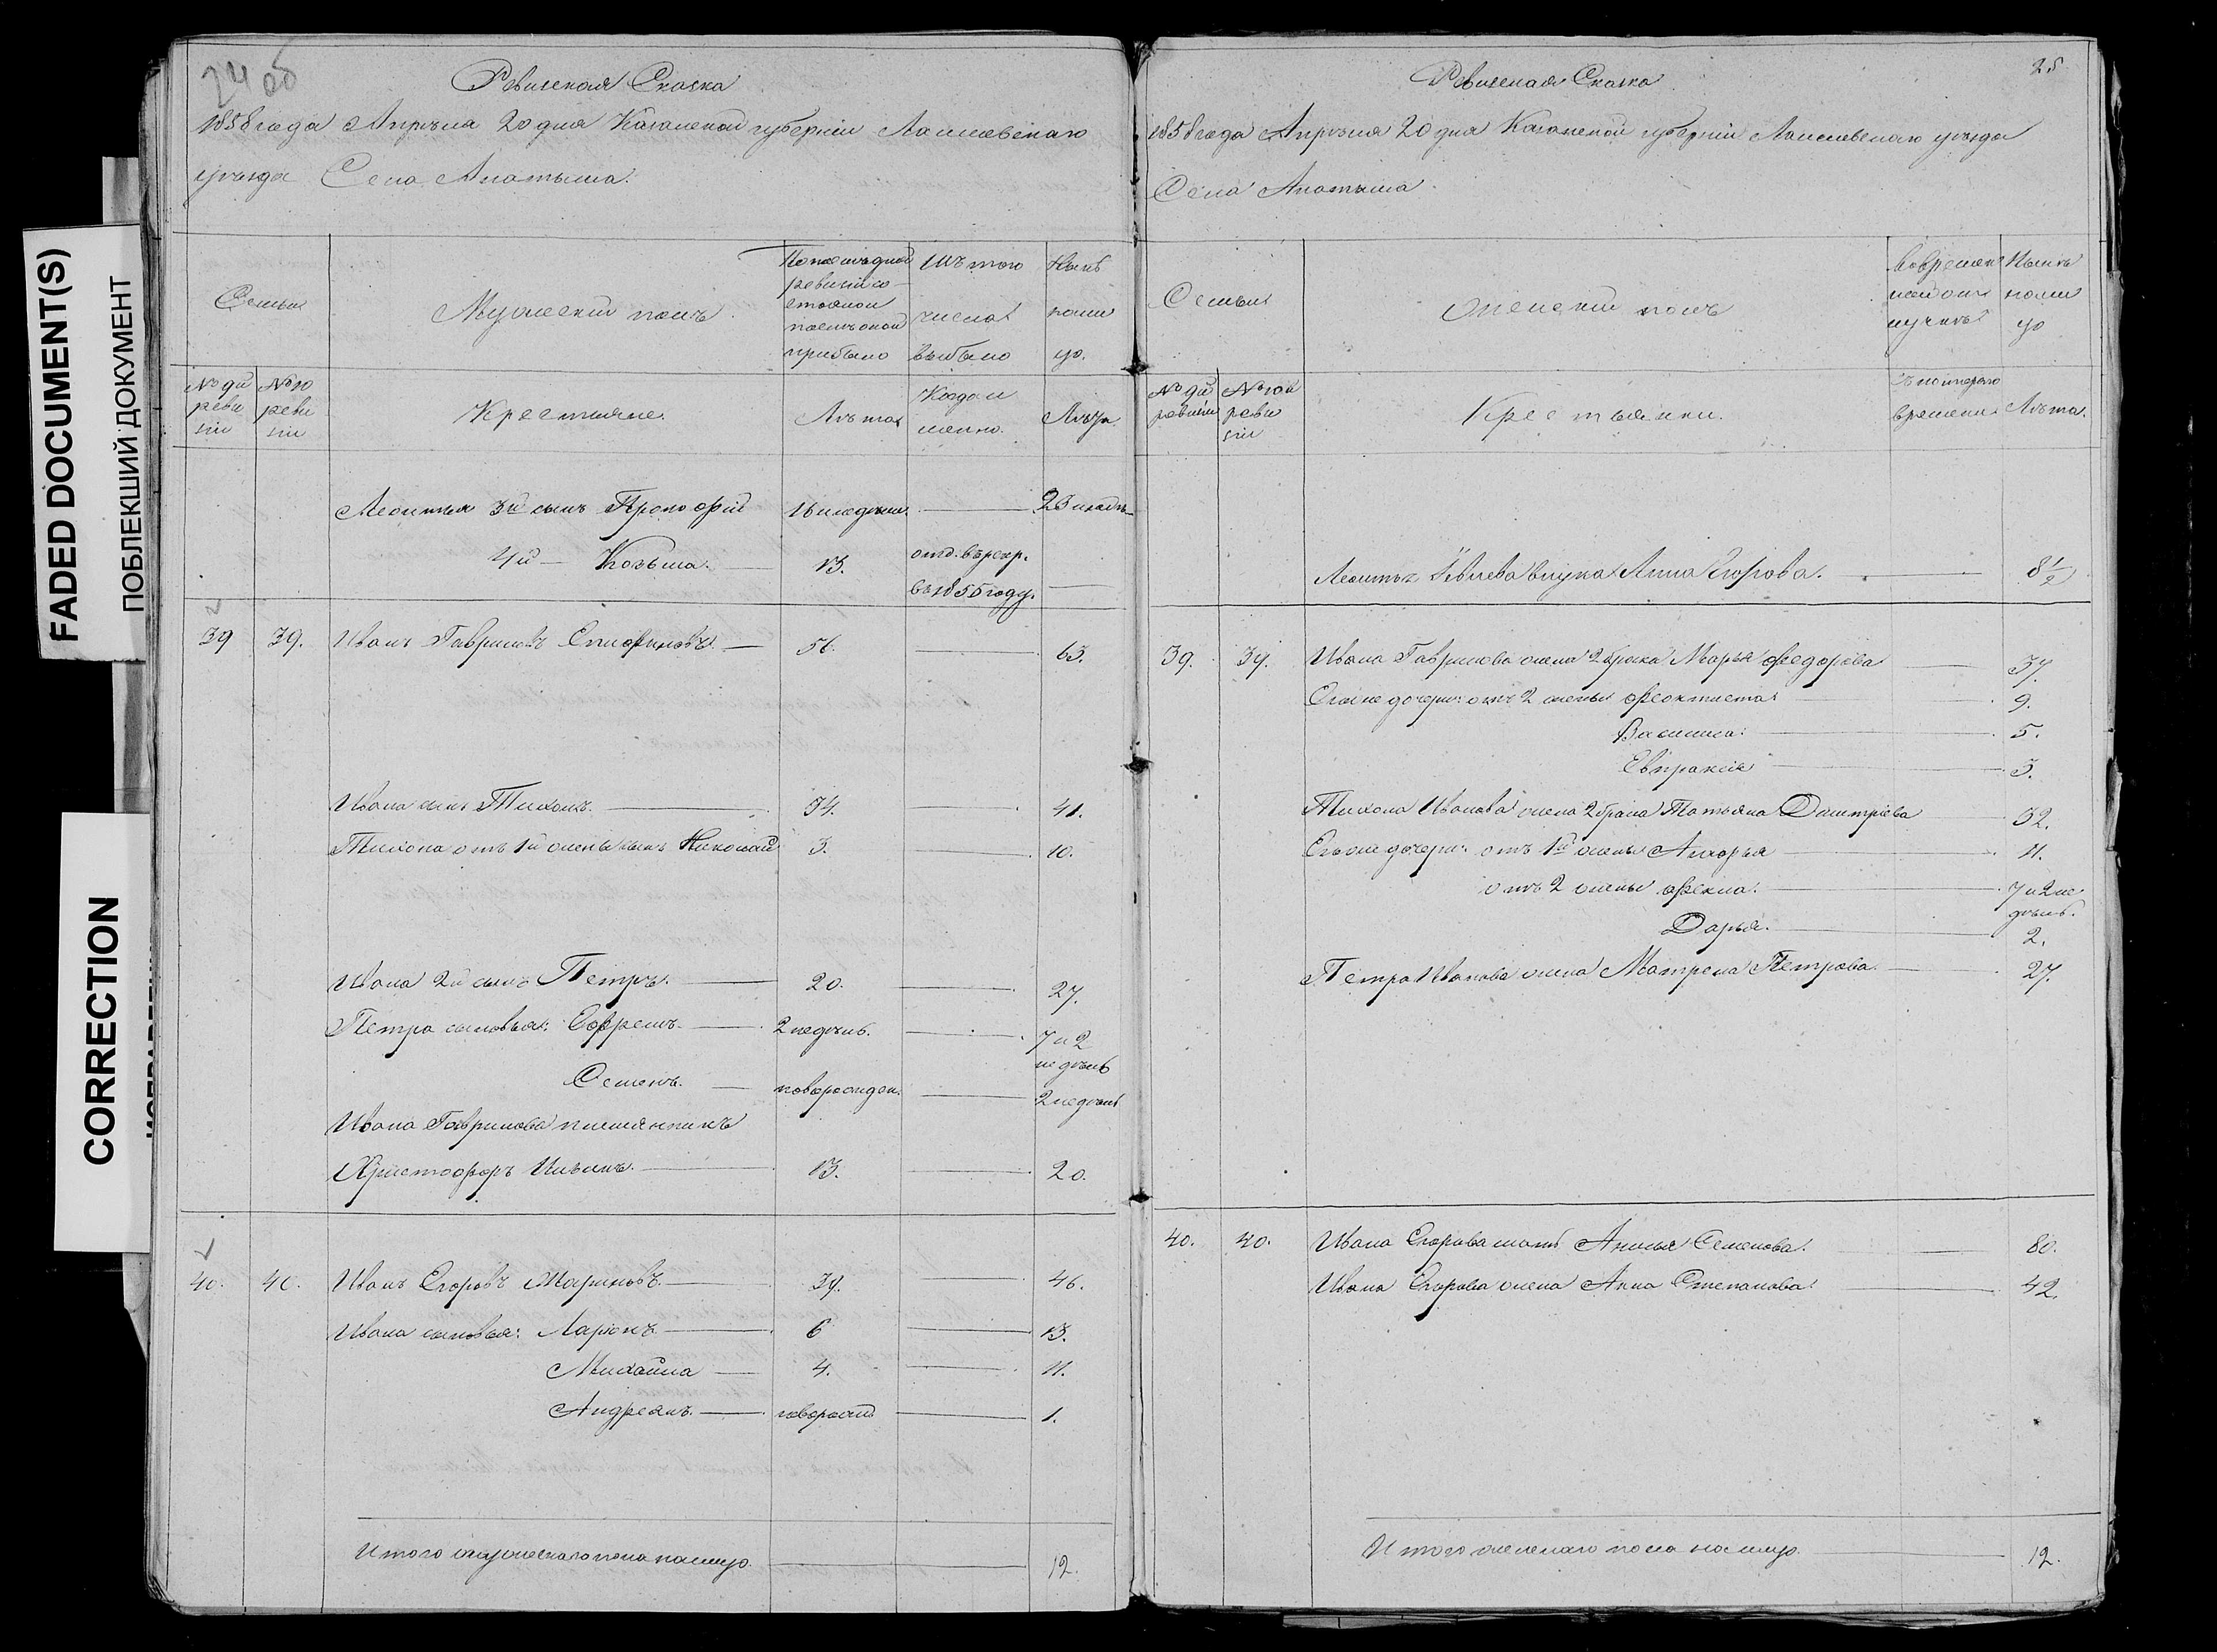 FADED DOCUMENT(S)
ПОБЛЕКШИЙ ДОКУМЕНТ
CORRECTION
24 об
Ревизская Сказка
1858 года Апрѣля 20 дня Казанской губерніи Лаишевскаго
уѣзда Села Анатыша.
Семьи
Мужескій полъ.
По послѣдней
ревизіи со-
стояло и
послѣ оной
прибыло
Изъ того
числа
выбыло
Нынѣ
на ли
цо.
№ 9й
реви
зіи
№ 10
реви
зіи
Крестьяне.
Лѣта
Когда и
менно.
Лѣта
Леонтья 3й сынъ Прокофій 16 недѣли 23 недѣл
4й — Козьма. 13. отд. въ рекр.
въ 1855 году.
39 39. Иванъ Гавриловъ 56. 63.
Ивана сынъ Тихонъ. 34. 41.
Тихона отъ 1й жены сынъ Николай 3. 10.
Ивана 2й сынъ Петръ. 20. 27.
Петра сыновья: Ефремъ. 2 недѣль. 7 и 2
недѣль
Семенъ. новорожден. 2 недѣль
Ивана Гаврилова племянникъ
Христофоръ Ильинъ. 13. 20.
40. 40. Иванъ Егоровъ Мариновъ 39. 46.
Ивана сыновья: Ларіонъ 6 13.
Михайла 4. 11.
Андреянъ. наворожд 1.
Итого мужескаго пола налицо. 12.
25
Ревизская Сказка
1858 года Апрѣля 20 дня Казанской губерніи Лаишевскаго уѣзда
Села Анатыша.
Семьи
Женскій полъ
Во времен
ной от
лучкѣ
Нынѣ
нали
цо
№ 9й
ревизіи
№ 10й
реви
зіи
Крестьянки.
съ котораго
времени
Лѣта.
Леонтья внука Анна Егорова. 8 1/2
39. 39. Ивана Гаврилова жена 2 брака Марья Федорова 37.
Егоже дочери: отъ 2 жены Феоктиста 9.
Василиса: 5.
Евпраксія 3.
Тихона Иванова жена 2 брака Татьяна Дмитріева 32.
Егоже дочери: отъ 1й жены Лукерья 11.
отъ 2 жены Фекла. 7 и 2 не
дѣль.
Дарья. 2.
Петра Иванова жена Матрена Петрова. 27.
40. 40. Ивана Егорова мать Анисья Семенова. 80.
Ивана Егорова жена Анна Степанова. 42.
Итого женскаго пола налицо. 12.